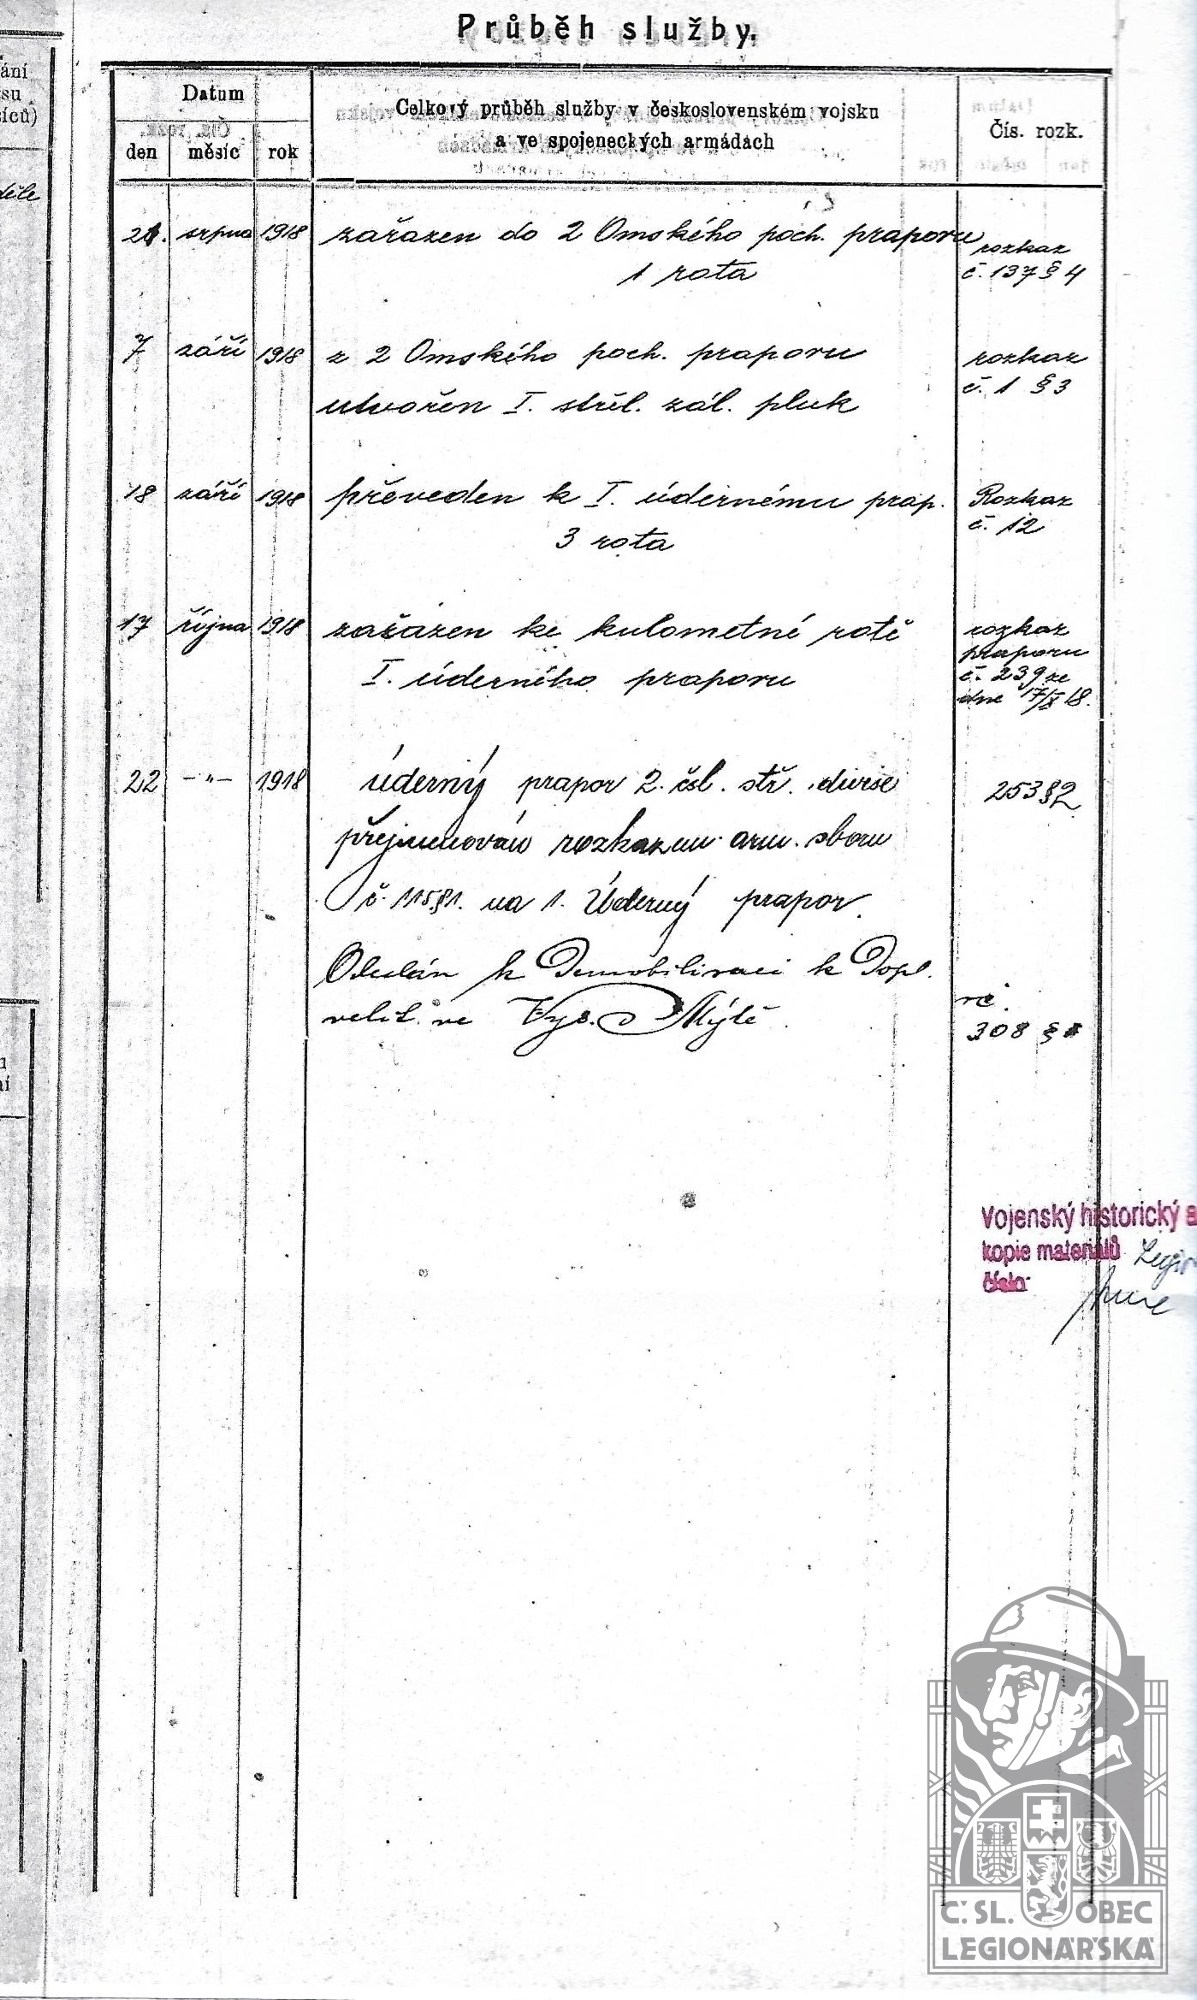 Průběh služby.
ání
su
síců)
Datum
den
měsíc
rok
Celkový průběh služby v československém vojsku
a ve spojeneckých armádách
Čís. rozk.
21. srpna 1918 zařazen do 2 Omského poch. praporu rozkaz
1 rota č. 137 § 4
7 září 1918 z 2 Omského poch. praporu rozkaz
utvořen I. střel. zál. pluk č. 1 § 3
18 září 1918 převeden k I. údernému prap. Rozkaz
3 rota č. 12
17 října 1918 zařazen ke kulometné rotě rozkaz
I. úderného praporu praporu
č. 239 ze
dne 17/X 18.
22 -"- 1918 Úderný prapor 2. čsl. stř. divise 253 § 2
přejmenován rozkazem arm. sboru
č. 115 § 1. na 1. Úderný prapor.
Odeslán k Demobilisaci k Dopl.
velit. ve Vys. Mýtě rč.
308 §
Vojenský historický a
kopie materiálů
číslo:
Č. SL. OBEC
LEGIONÁŘSKÁ